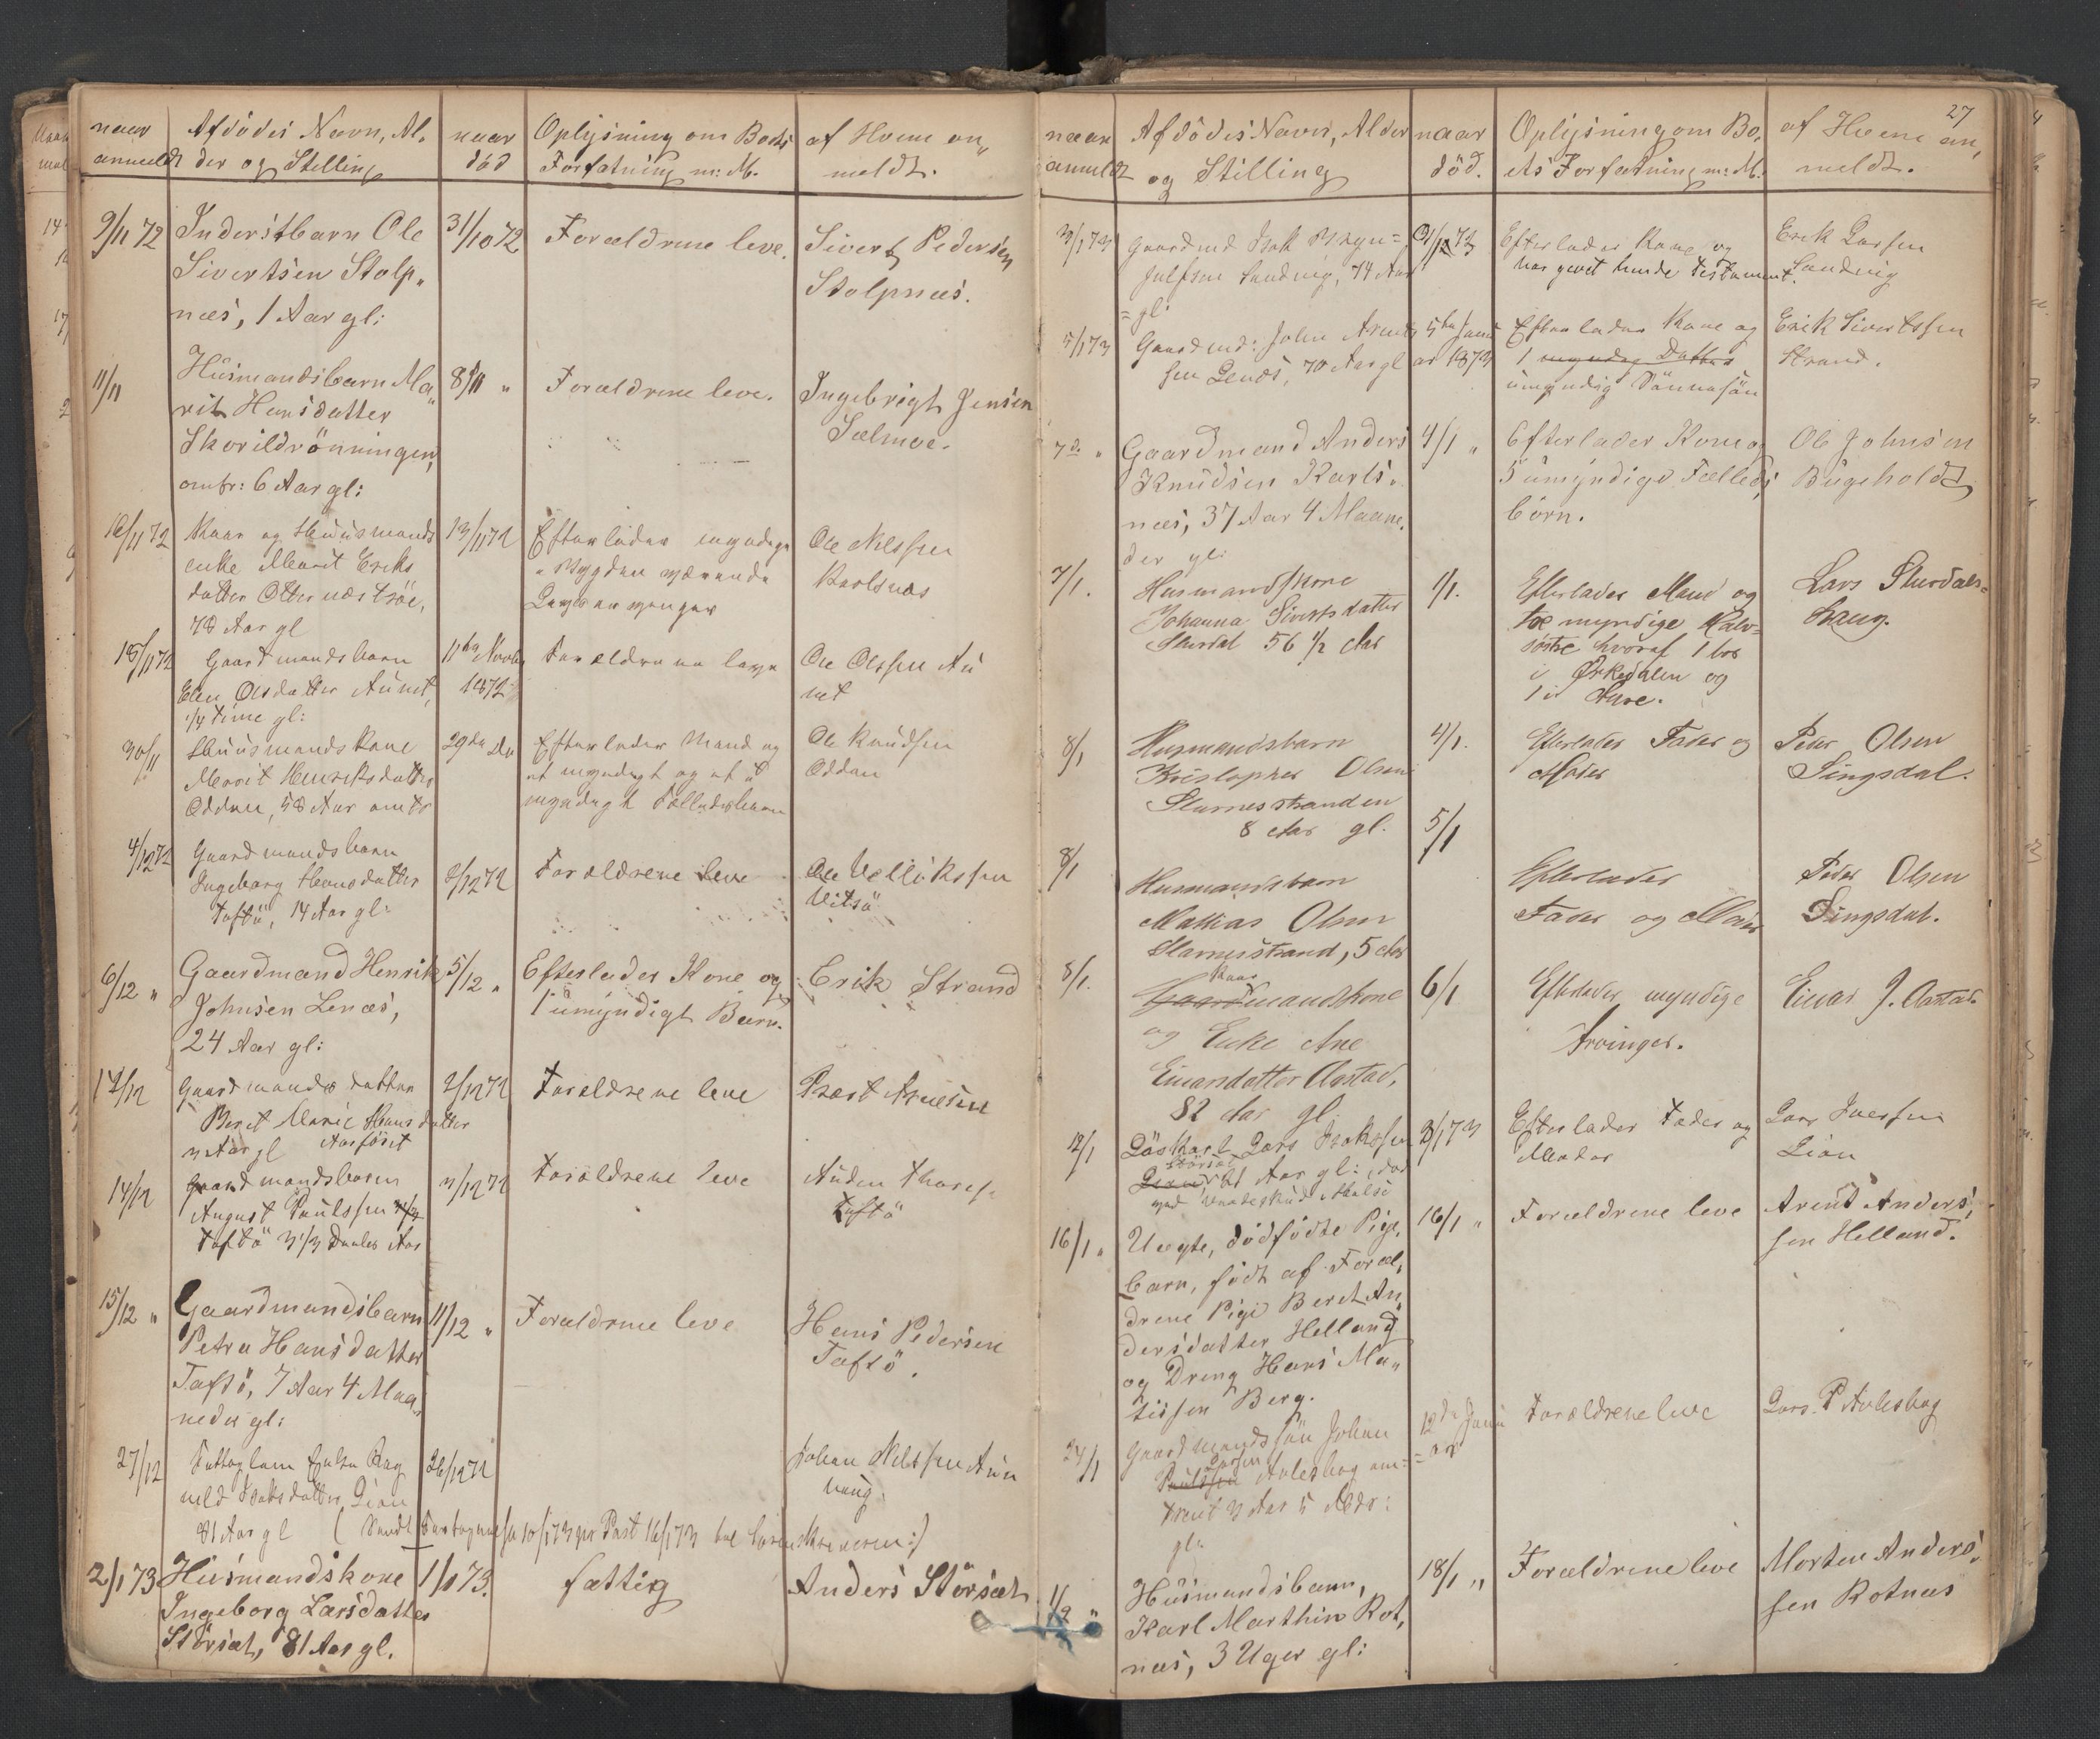 naar
anmeldt
Afdødes Navn, Al„
der og Stilling
naar
død
Oplysning om Boets
Forfatning m: M.
af Hvem an„
meldt.
9/11 72
Inderstbarn Ole
Sivertsen Stolp„
næs, 1 Aar gl:
31/10 72
Forældrene leve.
Sivert Pedersen
Stolpnæs.
11/11
Husmandsbarn Ma„
rit Hansdatter
Skorildrønningen,
omtr: 6 Aar gl:
8/11 „
Forældrene leve.
Ingebrigt Jensen
Sælmoe.
16/11 72
Kaar og Huusmands
enke Marit Eriks
datter Otternæs
78 Aar gl
13/11 72
Efterlader myndige
Livsarvinger
Ole Nilssen
Karlsnæs
18/11 72
Gaardmandsbarn
Elen Olsdatter Aunet,
1/4 time gl:
11te Novbr
1872
Forældrene leve
Ole Olssen Au
net
30/11
Huusmandskone
Marit Henriksdatter
Oddan, 58 Aar omtr
29de do
Efterlader Mand og
et myndigt og et u
myndigt Fælledsbarn
Ole Knudsen
Oddan
4/12 72
Gaardmandsbarn
Ingeborg Hansdatter
Taftö, 14 Aar gl:
2/12 72
Forældrene leve
Ole
Vitsö
6/12 „
Gaardmand Henrik
Johnsen Lenæs,
24 Aar gl:
5/12 „
Efterlader Kone og
1 umyndigt Barn.
Erik Strand
12/12
Gaardmands datter
Beret Marie Hansdatter
Aar gl Aarsöret
2/12 72
Forældrene leve
14/12
Gaardmandsbarn
August Paulssen
Taftö 3 1/3 Aar
11/12 72
Forældrene leve
Auden Thores.
Taftö
15/12 „
Gaardmandsbarn
Petra Hansdatter
Taftö, 7 Aar 4 Maa„
neder gl:
11/12 „
Forældrene leve
Hans Pedersen
Taftö.
27/12
Fattiglem Enke Rag
nild Isaksdatter Lian
81 Aar gl
26/12 72
Johan Nilssen Aun
haug.
2/1 73
Husmandskone
Ingeborg Larsdatter
Störset, 81 Aar gl.
1/1 73.
fattig
Anders Störset
27
naar
anmeldt
Afdødes Navn, Alder
og Stilling
naar
død.
Oplysning om Bo„
ets Forfatning m: M.
af Hvem an„
meldt.
3/1 73
Gaardmd Isak Bryn=
julfsen Sandvig, 74 Aar
=gl:
1/1 73
Efterlader Kone og
har gjort hende Testament.
Erik Larsen
Sandvig
5/1 73
Gaardmd: John Arnts
sen Lenæs, 70 Aar gl
5te Janu
ar 1873
Efterlader Kone og
1 myndig Datter
umyndig Sönnesön
Erik Sivertssen
Strand.
7de „
Gaardmand Anders
Knudsen Karls„
næs, 37 Aar 4 Maane„
der gl:
4/1 „
Efterlader Kone og
5 umyndige Fælleds
börn.
Ole Johnsen
Bügeholdt
7/1.
Husmandskone
Johanna Sivertsdatter
Slurdal 56 1/2 Aar
1/1.
Efterlader Mand og
toe myndige Halv=
søstre hvoraf 1 bor
i Ørkedalen og
1 i Aure.
Lars Slurdals=
haug.
8/1
Husmandsbarn
Kristopher Olsen
Slarnesstranden
8 Aar gl.
4/1.
Efterlader Fader og
Moder
Peder Olsen
Singsdal.
8/1
Husmandsbarn
Mathias Olsen
Slarnesstrand, 5 Aar
5/1
Efterlader
Fader og Moder
Peder Olsen
Singsdal.
8/1.
Kaar
Gaardmandskone
og Enke Ane
Einarsdatter Aastad,
82 Aar gl.
6/1
Efterlader myndige
Arvinger.
Einar J. Aastad.
12/1
Löskarl Lars Isakssen
Störset
Lian 21 Aar gl: död
ved Vaadeskud
8/1 73
Efterlader Fader og
Moder
Lars Iversen
Lian
16/1 „
Uægte, dødfødte Pige„
barn, født af Foræl„
drene Pige Beret An„
dersdatter Helland
og Dreng Hans Ma„
tissen Berg.
16/1 „
Forældrene leve
Arent Anders„
sen Helland.
24/1
Gaardmandssön Johan
Larsen
Paulssen Aalesbog om=
trent 3 Aar 5 Mdr:
gl:
12te Janu
=ar
Forældrene leve
Lars P Aalesbog
1/2 „
Husmandsbarn,
Karl Marthin Rot„
næs, 3 Uger gl:
18/1 „
Forældrene leve
Morten Anders„
sen Rotnæs